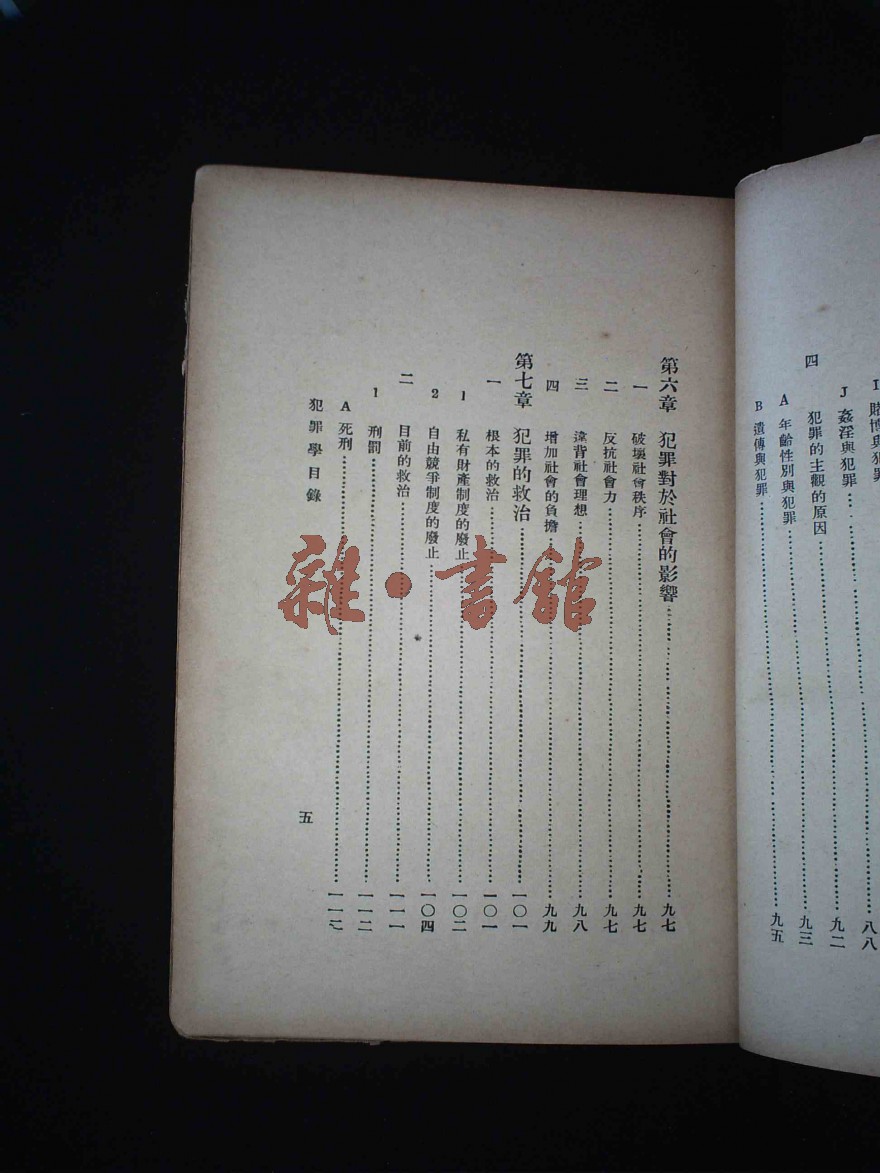 I 賭博與犯罪……八八
J 姦淫與犯罪……九二
四 犯罪的主觀的原因……九三
A 年齡性別與犯罪
B 遺傳與犯罪……九五
第六章 犯罪對於社會的影響……九七
一 破壞社會秩序……九七
二 反抗社會力……九七
三 違背社會理想……九八
四 增加社會的負擔……九九
第七章 犯罪的救治……一〇一
一 根本的救治……一〇一
1 私有財產制度的廢止……一〇二
2 自由競爭制度的廢止……一〇四
二 目前的救治……一一一
1 刑罰……一一二
A 死刑……一一
犯罪學目錄
五
雜·書館